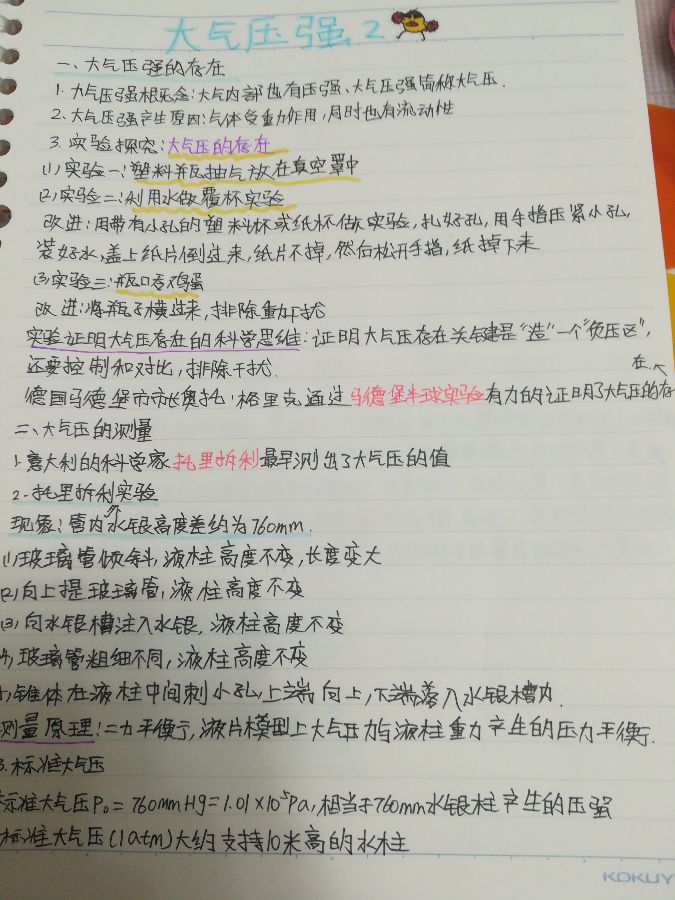 大气压强.2
一、大气压强的存在
1.大气压强概念:大气内部也有压强、大气压强简称大气压.
2.大气压强产生原因:气体受重力作用,同时也有流动性
3.实验探究:大气压的存在
(1)实验一:塑料瓶抽气放在真空罩中
(2)实验二:利用水做覆杯实验
改进:用带有小孔的塑料杯或纸杯做实验,扎好孔,用手指压紧小孔,
装好水,盖上纸片倒过来,纸片不掉,然后松开手指,纸掉下来
(3)实验三:瓶口吞鸡蛋
改进:将瓶子横过来,排除重力干扰
实验证明大气压存在的科学思维:证明大气压存在关键是"造"一个"负压区",
还要控制和对比,排除干扰.
德国马德堡市市长奥托·格里克通过马德堡半球实验有力的证明了大气压的存在
二、大气压的测量
1.意大利的科学家托里拆利最早测出了大气压的值
2.托里拆利实验
现象:管内外水银高度差约为760mm.
(1)玻璃管倾斜,液柱高度不变,长度变大
(2)向上提玻璃管,液柱高度不变
(3)向水银槽注入水银,液柱高度不变
(4)玻璃管粗细不同,液柱高度不变
)锥体在液柱中间刺小孔,上端向上,下端落入水银槽内.
测量原理:二力平衡,液片模型上大气压力与液柱重力产生的压力平衡.
3.标准大气压
标准大气压P₀=760mmHg=1.01×10⁵Pa,相当于760mm水银柱产生的压强
标准大气压(1atm)大约支持10米高的水柱
KOKUY